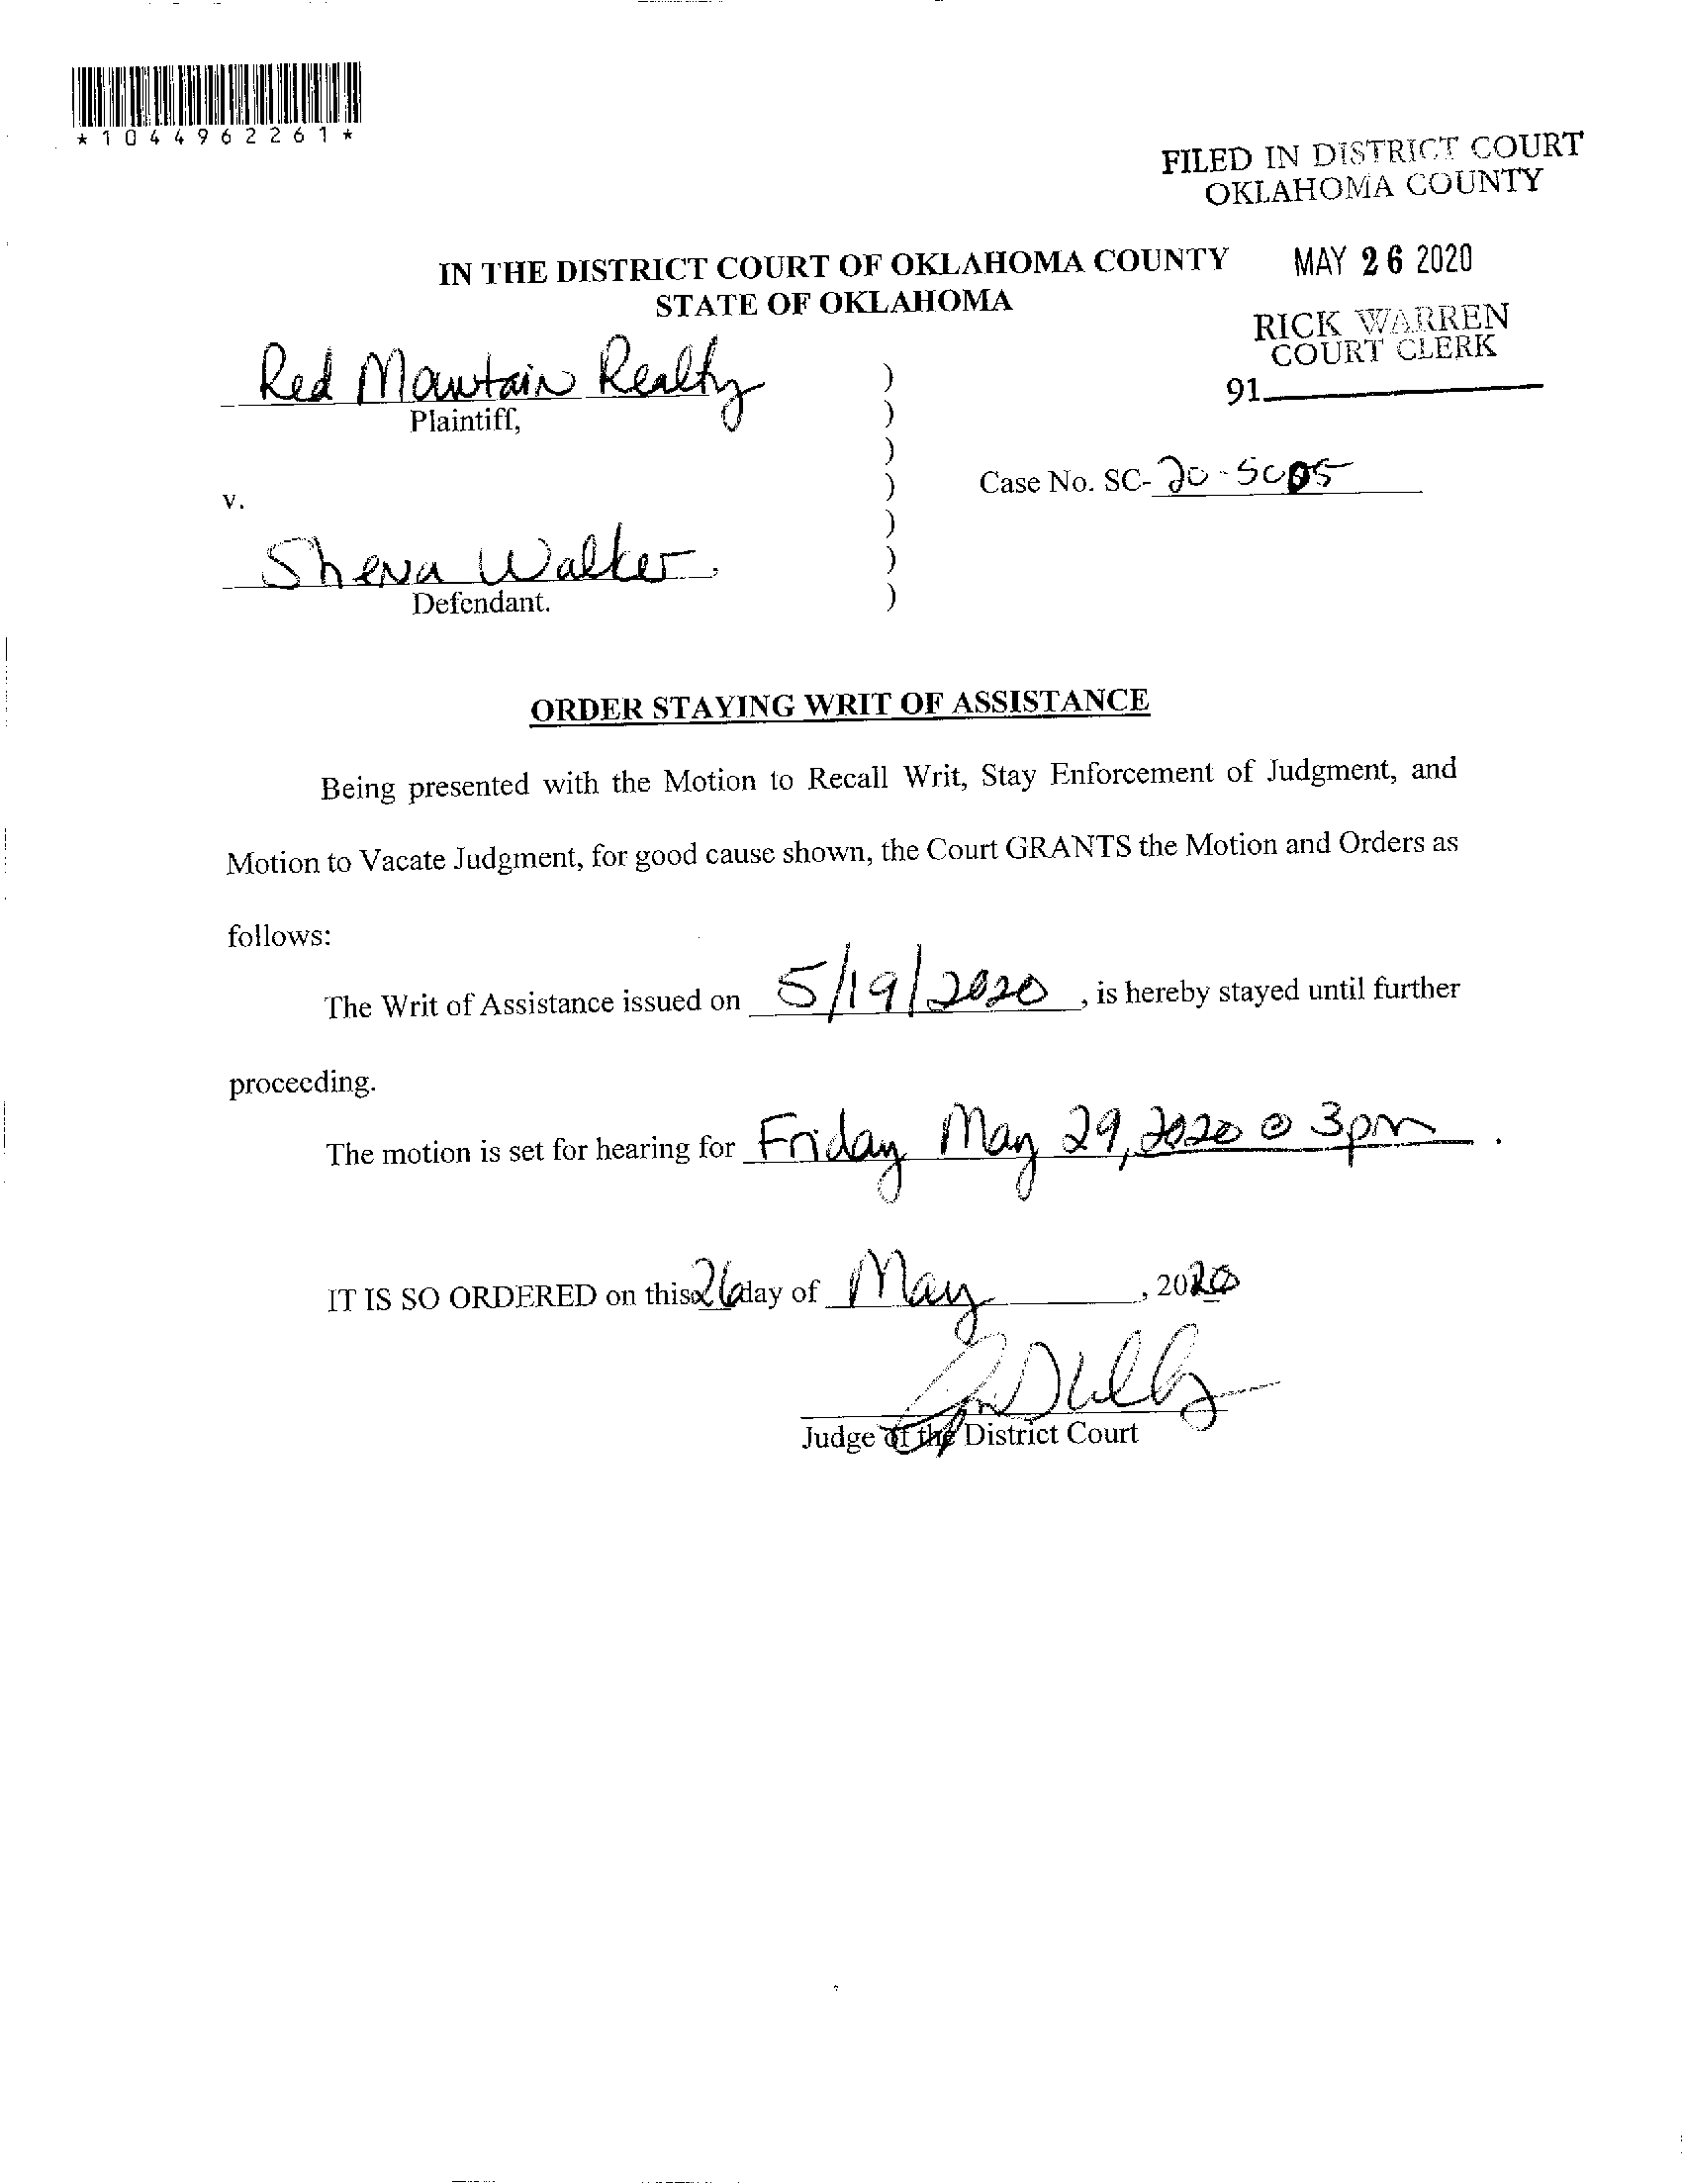 *1044962261*
FILED IN DISTRICT COURT
OKLAHOMA COUNTY
IN THE DISTRICT COURT OF OKLAHOMA COUNTY
MAY 26 2020
STATE OF OKLAHOMA
RICK WARREN
COURT CLERK
91
Red Mountain Realty
Plaintiff,
)
)
)
)
)
)
)
v.
Case No. SC-20-5005
Shena Walker.
Defendant.
ORDER STAYING WRIT OF ASSISTANCE
Being presented with the Motion to Recall Writ, Stay Enforcement of Judgment, and
Motion to Vacate Judgment, for good cause shown, the Court GRANTS the Motion and Orders as
follows:
The Writ of Assistance issued on 5/19/2020, is hereby stayed until further
proceeding.
The motion is set for hearing for Friday May 29, 2020 @ 3pm.
IT IS SO ORDERED on this 26 day of May, 2020
Judge of the District Court